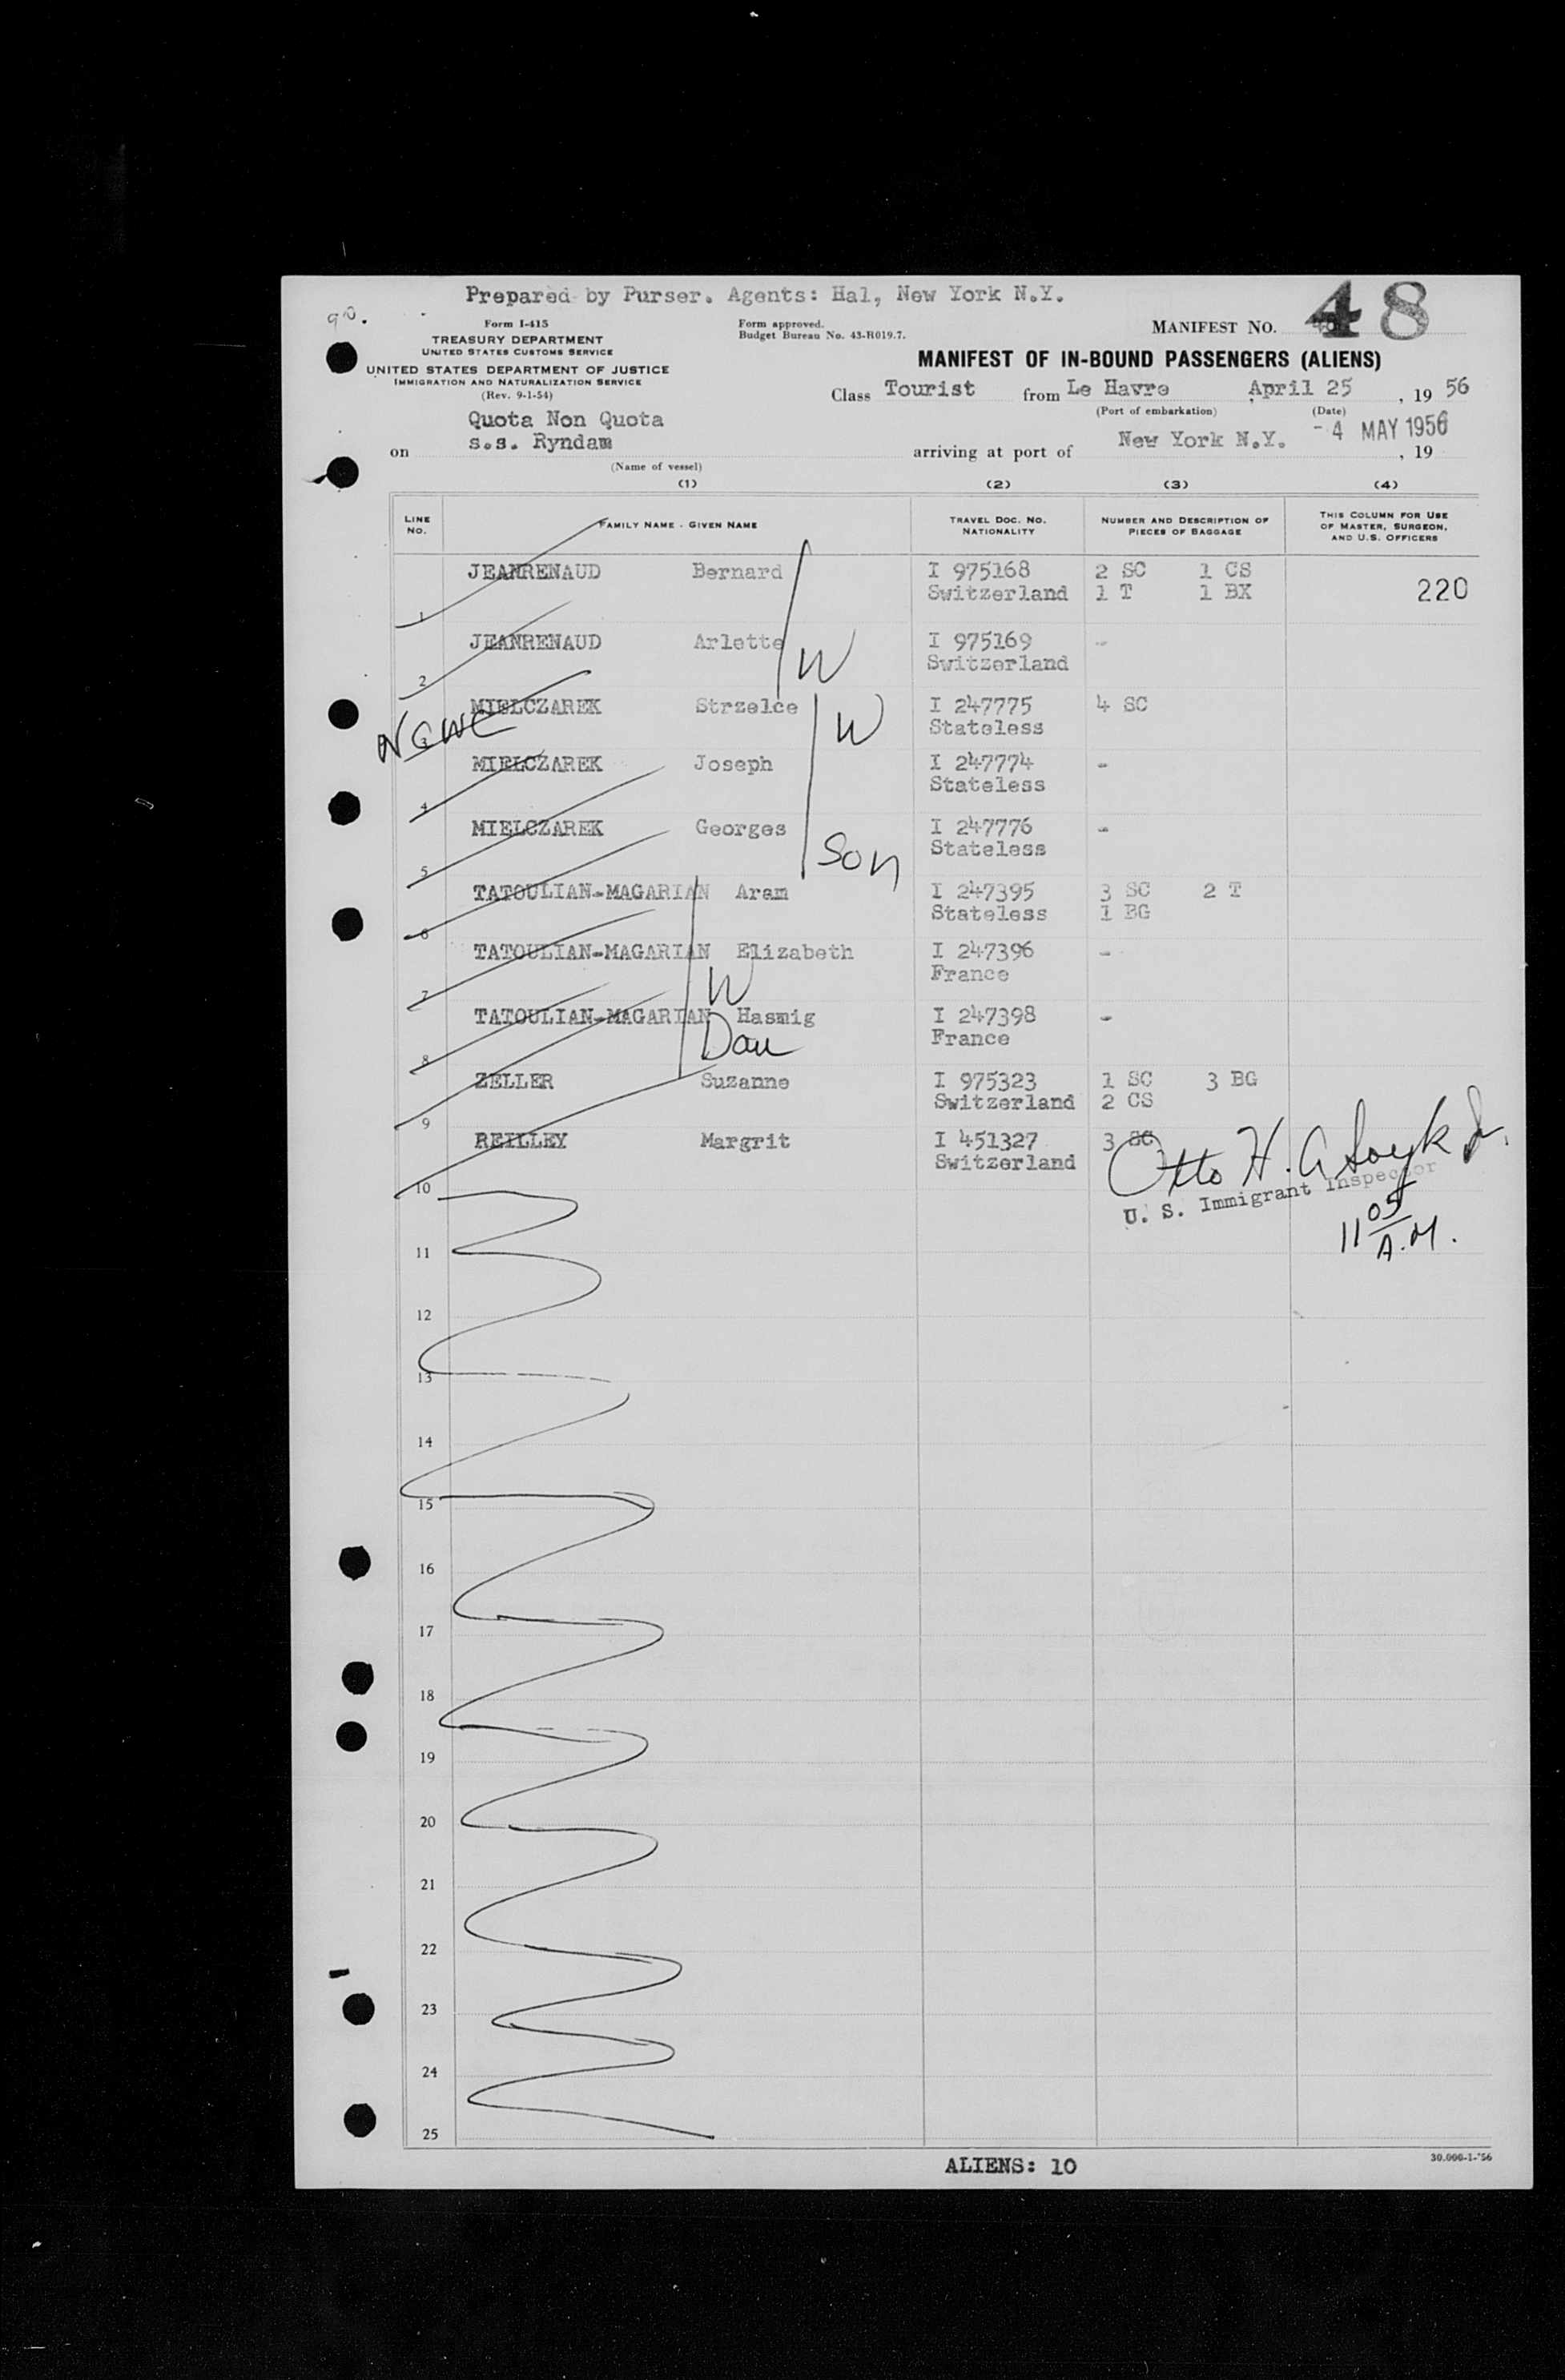 Prepared by Purser. Agents: Hal, New York N.Y.
Form I-415
TREASURY DEPARTMENT
UNITED STATES CUSTOMS SERVICE
UNITED STATES DEPARTMENT OF JUSTICE
IMMIGRATION AND NATURALIZATION SERVICE
(Rev. 9-1-54)
Form approved.
Budget Bureau No. 43-R019.7.
MANIFEST NO. 48
MANIFEST OF IN-BOUND PASSENGERS (ALIENS)
Class Tourist from Le Havre April 25, 19 56
(Port of embarkation) (Date)
Quota Non Quota
on s.s. Ryndam arriving at port of New York N.Y. - 4 MAY 1956, 19
(Name of vessel)
(1) (2) (3) (4)
LINE NO. FAMILY NAME - GIVEN NAME TRAVEL DOC. NO. NATIONALITY NUMBER AND DESCRIPTION OF PIECES OF BAGGAGE THIS COLUMN FOR USE OF MASTER, SURGEON, AND U.S. OFFICERS
JEANRENAUD Bernard I 975168 2 SC 1 CS
1 Switzerland 1 T 1 BX 220
JEANRENAUD Arlette I 975169 -
2 W Switzerland
MIELCZAREK Strzelce I 247775 4 SC
3 W Stateless
MIELCZAREK Joseph I 247774 -
4 Stateless
MIELCZAREK Georges I 247776 -
5 Son Stateless
TATOULIAN-MAGARIAN Aram I 247395 3 SC 2 T
6 Stateless 1 BG
TATOULIAN-MAGARIAN Elizabeth I 247396 -
7 W France
TATOULIAN-MAGARIAN Hasmig I 247398 -
8 Dau France
ZELLER Suzanne I 975323 1 SC 3 BG
9 Switzerland 2 CS
REILLEY Margrit I 451327 3 SC
10 Switzerland
Otto H.
U. S. Immigrant Inspector
11 05 A.M.
11
12
13
14
15
16
17
18
19
20
21
22
23
24
25
ALIENS: 10
30.000-1-'56